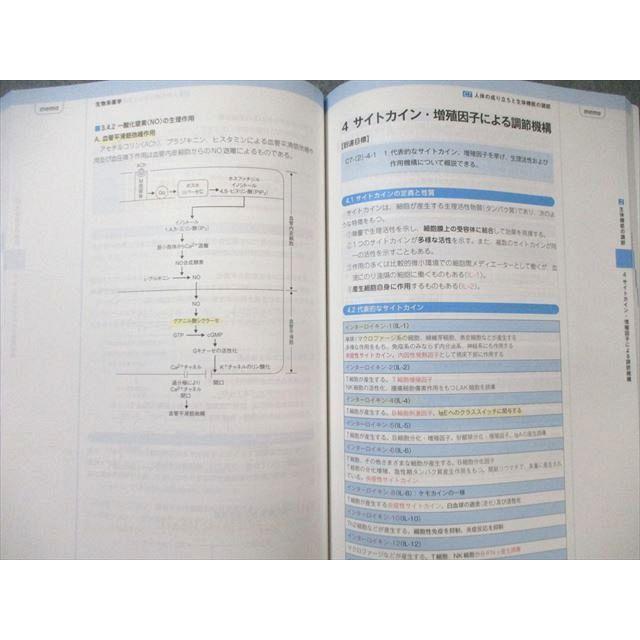 memo
生物系薬学
■3.4.2 一酸化窒素(NO)の生理作用
A. 血管平滑筋弛緩作用
アセチルコリン(ACh)、ブラジキニン、ヒスタミンによる血管平滑筋弛緩作
用及び血圧降下作用は血管内皮細胞からのNO遊離によるものである。
ACh
Gq
ホスホ
リパーゼC
ホスファチジル
イノシトール
4,5-ビスリン酸(PIP₂)
イノシトール
1,4,5-三リン酸(IP₃)
貯小胞体からCa²⁺遊離
NO合成酵素
L-アルギニン
NO
血管内皮細胞
NO
グアニル酸シクラーゼ
GTP
cGMP
Gキナーゼの活性化
Ca²⁺チャネル
K⁺チャネルのリン酸化
過分極により
Ca²⁺チャネル
閉口
開口
血管平滑筋弛緩
C7 人体の成り立ちと生体機能の調節
memo
4 サイトカイン・増殖因子による調節機構
【到達目標】
C7-(2)-4-1
1. 代表的なサイトカイン、増殖因子を挙げ、生理活性および
作用機構について概説できる。
4.1 サイトカインの定義と性質
サイトカインは、細胞が産生する生理活性物質(タンパク質)であり、次のよ
うな特徴をもつ。
①微量で生理活性を示し、細胞膜上の受容体に結合して効果を発揮する。
②1つのサイトカインが多様な活性を示す。また、複数のサイトカインが同
一の活性を示すこともある。
③作用の多くは比較的微小環境での細胞間メディエーターとして働くが、血
流にのり遠隔の細胞に働くものもある(IL-1)。
④産生細胞自身に作用するものもある(IL-2)。
4.2 代表的なサイトカイン
インターロイキン-1(IL-1)
単球(マクロファージ系の細胞、線維芽細胞、表皮細胞などが産生する
多様な作用をもち、免疫系のみならず内分泌系、神経系にも作用する
炎症性サイトカイン、内因性発熱因子として視床下部に作用する
インターロイキン-2(IL-2)
T細胞が産生する。T細胞増殖因子
NK細胞の活性化、腫瘍細胞傷害作用をもつLAK細胞を誘導
インターロイキン-4(IL-4)
T細胞が産生する。B細胞刺激因子。IgEへのクラススイッチに関与する
インターロイキン-5(IL-5)
T細胞が産生する。B細胞分化・増殖因子。好酸球分化・増殖因子。IgAの産生誘導
インターロイキン-6(IL-6)
T細胞、その他さまざまな細胞が産生する。B細胞分化因子
T細胞の分化増殖、急性期タンパク質産生作用をもつ。関節リウマチで、多量に産生され
ている。炎症性サイトカイン
インターロイキン-8(IL-8):ケモカインの一種
T細胞などが産生する炎症性サイトカイン。白血球の遊走(走化)及び活性化
インターロイキン-10(IL-10)
Th2細胞などが産生する。細胞性免疫を抑制、炎症反応を抑制
インターロイキン-12(IL-12)
マクロファージなどが産生する。T細胞、NK細胞からIFN-γ産生誘導
生体機能の調節
4 サイトカイン・増殖因子による調節機構